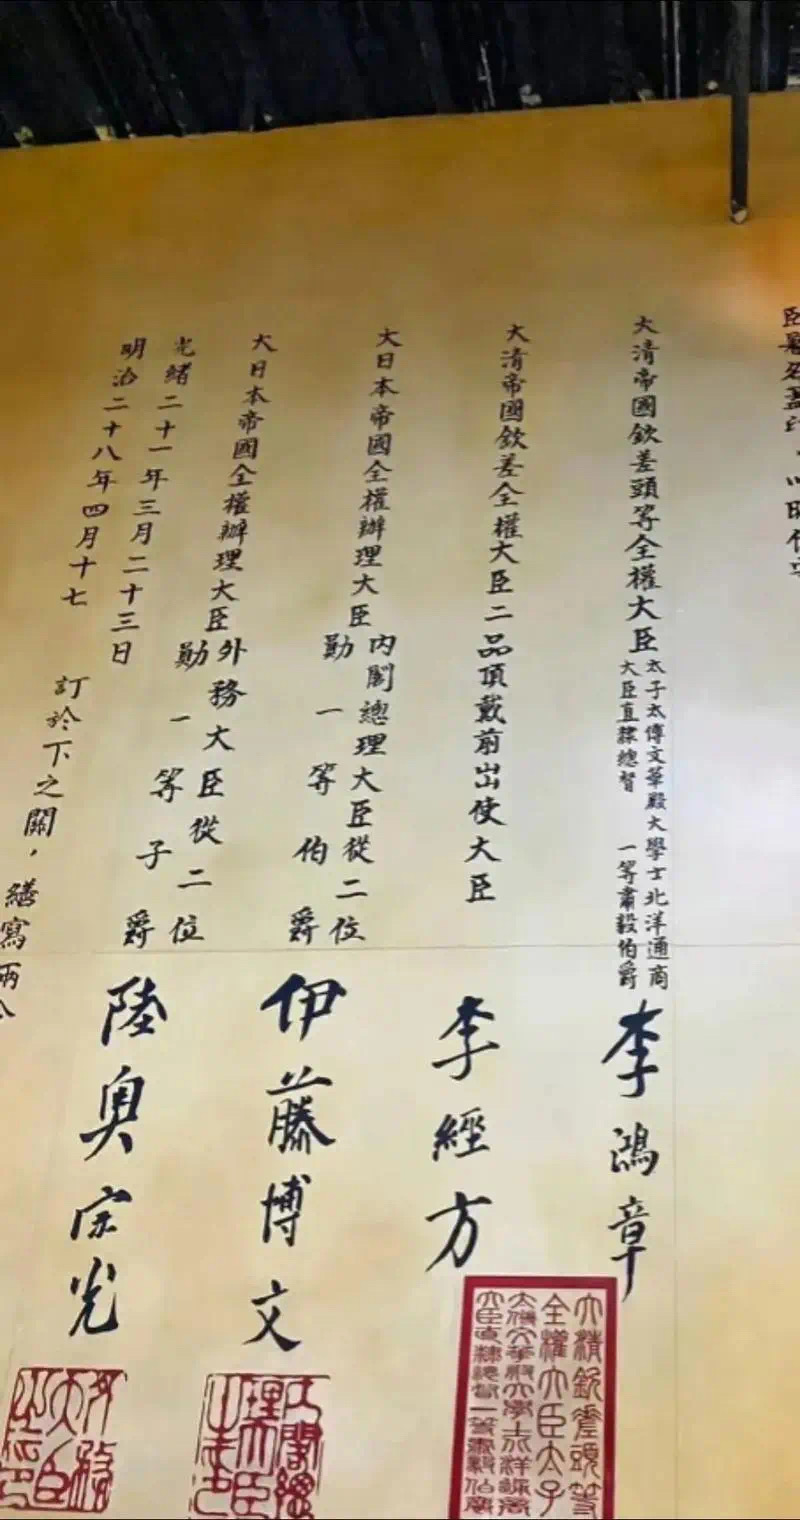 臣署名蓋印，以昭信守
大清帝國欽差頭等全權大臣
太子太傅文華殿大學士北洋通商
大臣直隸總督 一等肅毅伯爵
李鴻章
大清帝國欽差全權大臣二品頂戴前出使大臣
李經方
大日本帝國全權辦理大臣
內閣總理大臣從二位
勳一等伯爵
伊藤博文
大日本帝國全權辦理大臣
外務大臣從二位
勳一等子爵
陸奧宗光
光緒二十一年三月二十三日
明治二十八年四月十七
訂於下之關，繕寫兩
大清欽差頭等
全權大臣太子
太傅文華殿大學士北洋通商
大臣直隸總督一等肅毅伯爵
內閣總
理大臣
之印
外務
大臣
之印